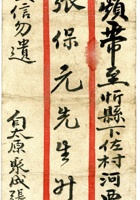 煩帶至忻縣下佐村河西
張保元先生升
信勿遺
自太原聚成張